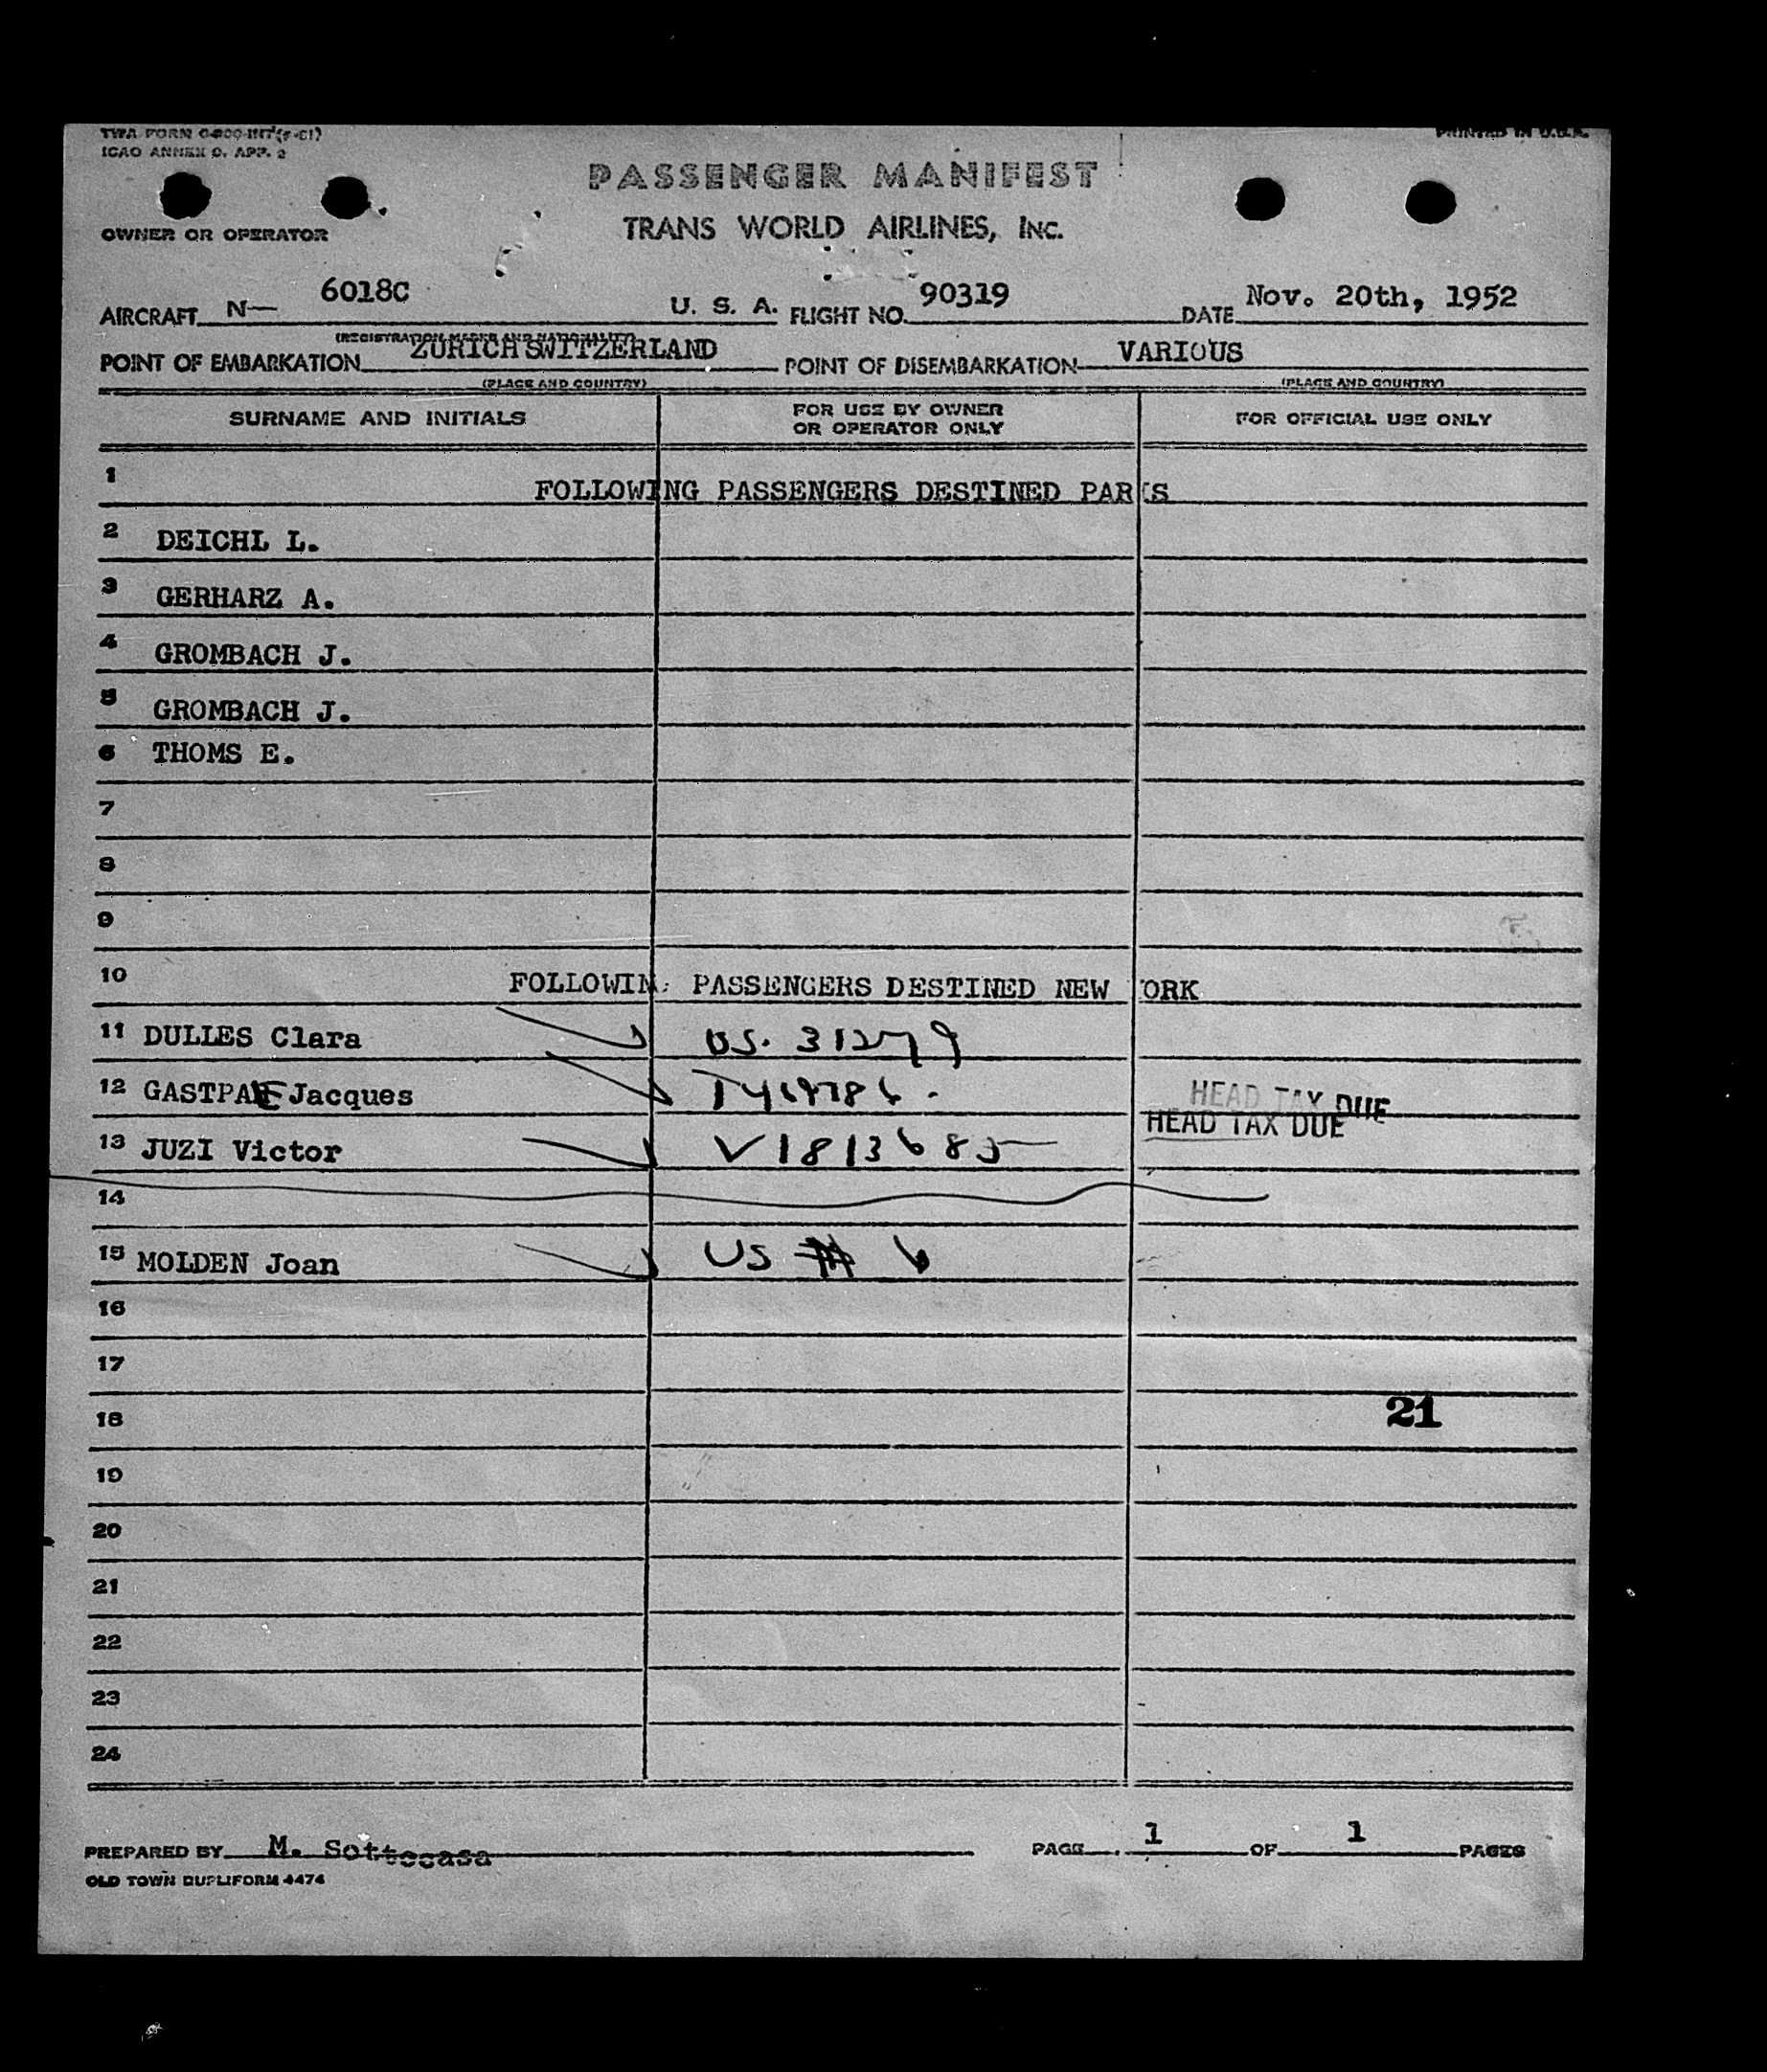 TWA FORM
ICAO ANNEX 9. APP. 2
PRINTED IN U.S.A.
PASSENGER MANIFEST
OWNER OR OPERATOR
TRANS WORLD AIRLINES, INC.
AIRCRAFT N— 6018C U. S. A. FLIGHT NO. 90319 DATE Nov. 20th, 1952
(REGISTRATION MARKS AND NATIONALITY)
POINT OF EMBARKATION ZURICH SWITZERLAND POINT OF DISEMBARKATION VARIOUS
(PLACE AND COUNTRY) (PLACE AND COUNTRY)
SURNAME AND INITIALS FOR USE BY OWNER OR OPERATOR ONLY FOR OFFICIAL USE ONLY
1 FOLLOWING PASSENGERS DESTINED PARIS
2 DEICHL L.
3 GERHARZ A.
4 GROMBACH J.
5 GROMBACH J.
6 THOMS E.
7
8
9
10 FOLLOWIN PASSENGERS DESTINED NEW ORK
11 DULLES Clara US. 31279
12 Jacques HEAD TAX DUE
HEAD TAX DUE
13 JUZI Victor V1813685
14
15 MOLDEN Joan US
16
17
18 21
19
20
21
22
23
24
PREPARED BY M. Sottocasa PAGE 1 OF 1 PAGES
OLD TOWN DUPLIFORM 4474